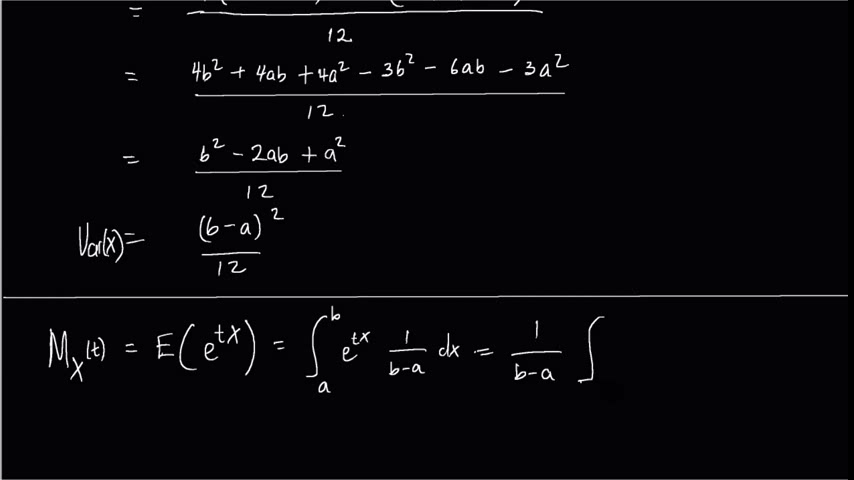 =
12
= 4b² + 4ab + 4a² - 3b² - 6ab - 3a²
12.
= b² - 2ab + a²
12
Var(x) = (b-a)²
12
M_X(t) = E(e^{tX}) = ∫_a^b e^{tx} 1/(b-a) dx = 1/(b-a) ∫